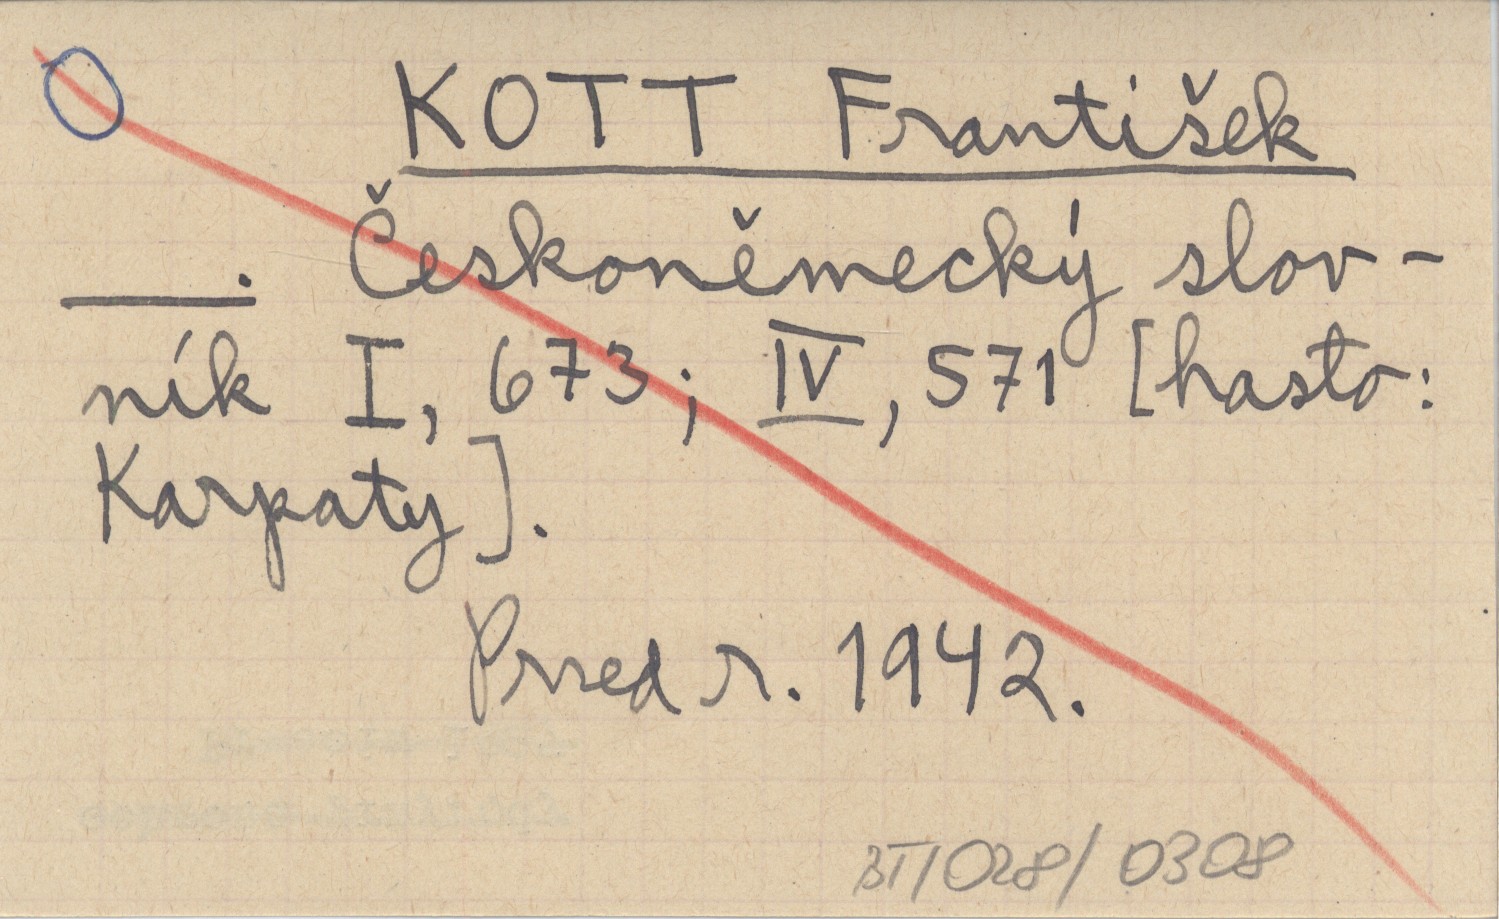 KOTT František
____. Českoněmecký slov-
ník I, 673; IV, 571 [hasto:
Karpaty].
Pred r. 1942.
BT/028/0308